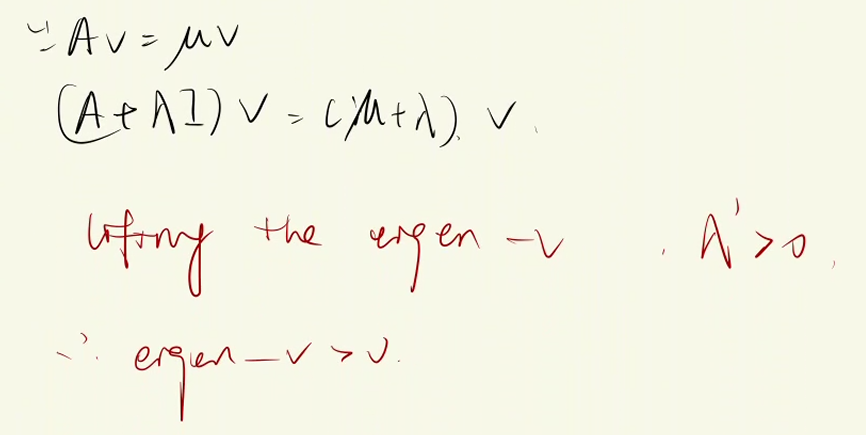 ∵ Av = μv
(A + λI) v = (μ+λ) v.
lifting the eigen-v . λ' > 0,
∴ eigen-v > 0.